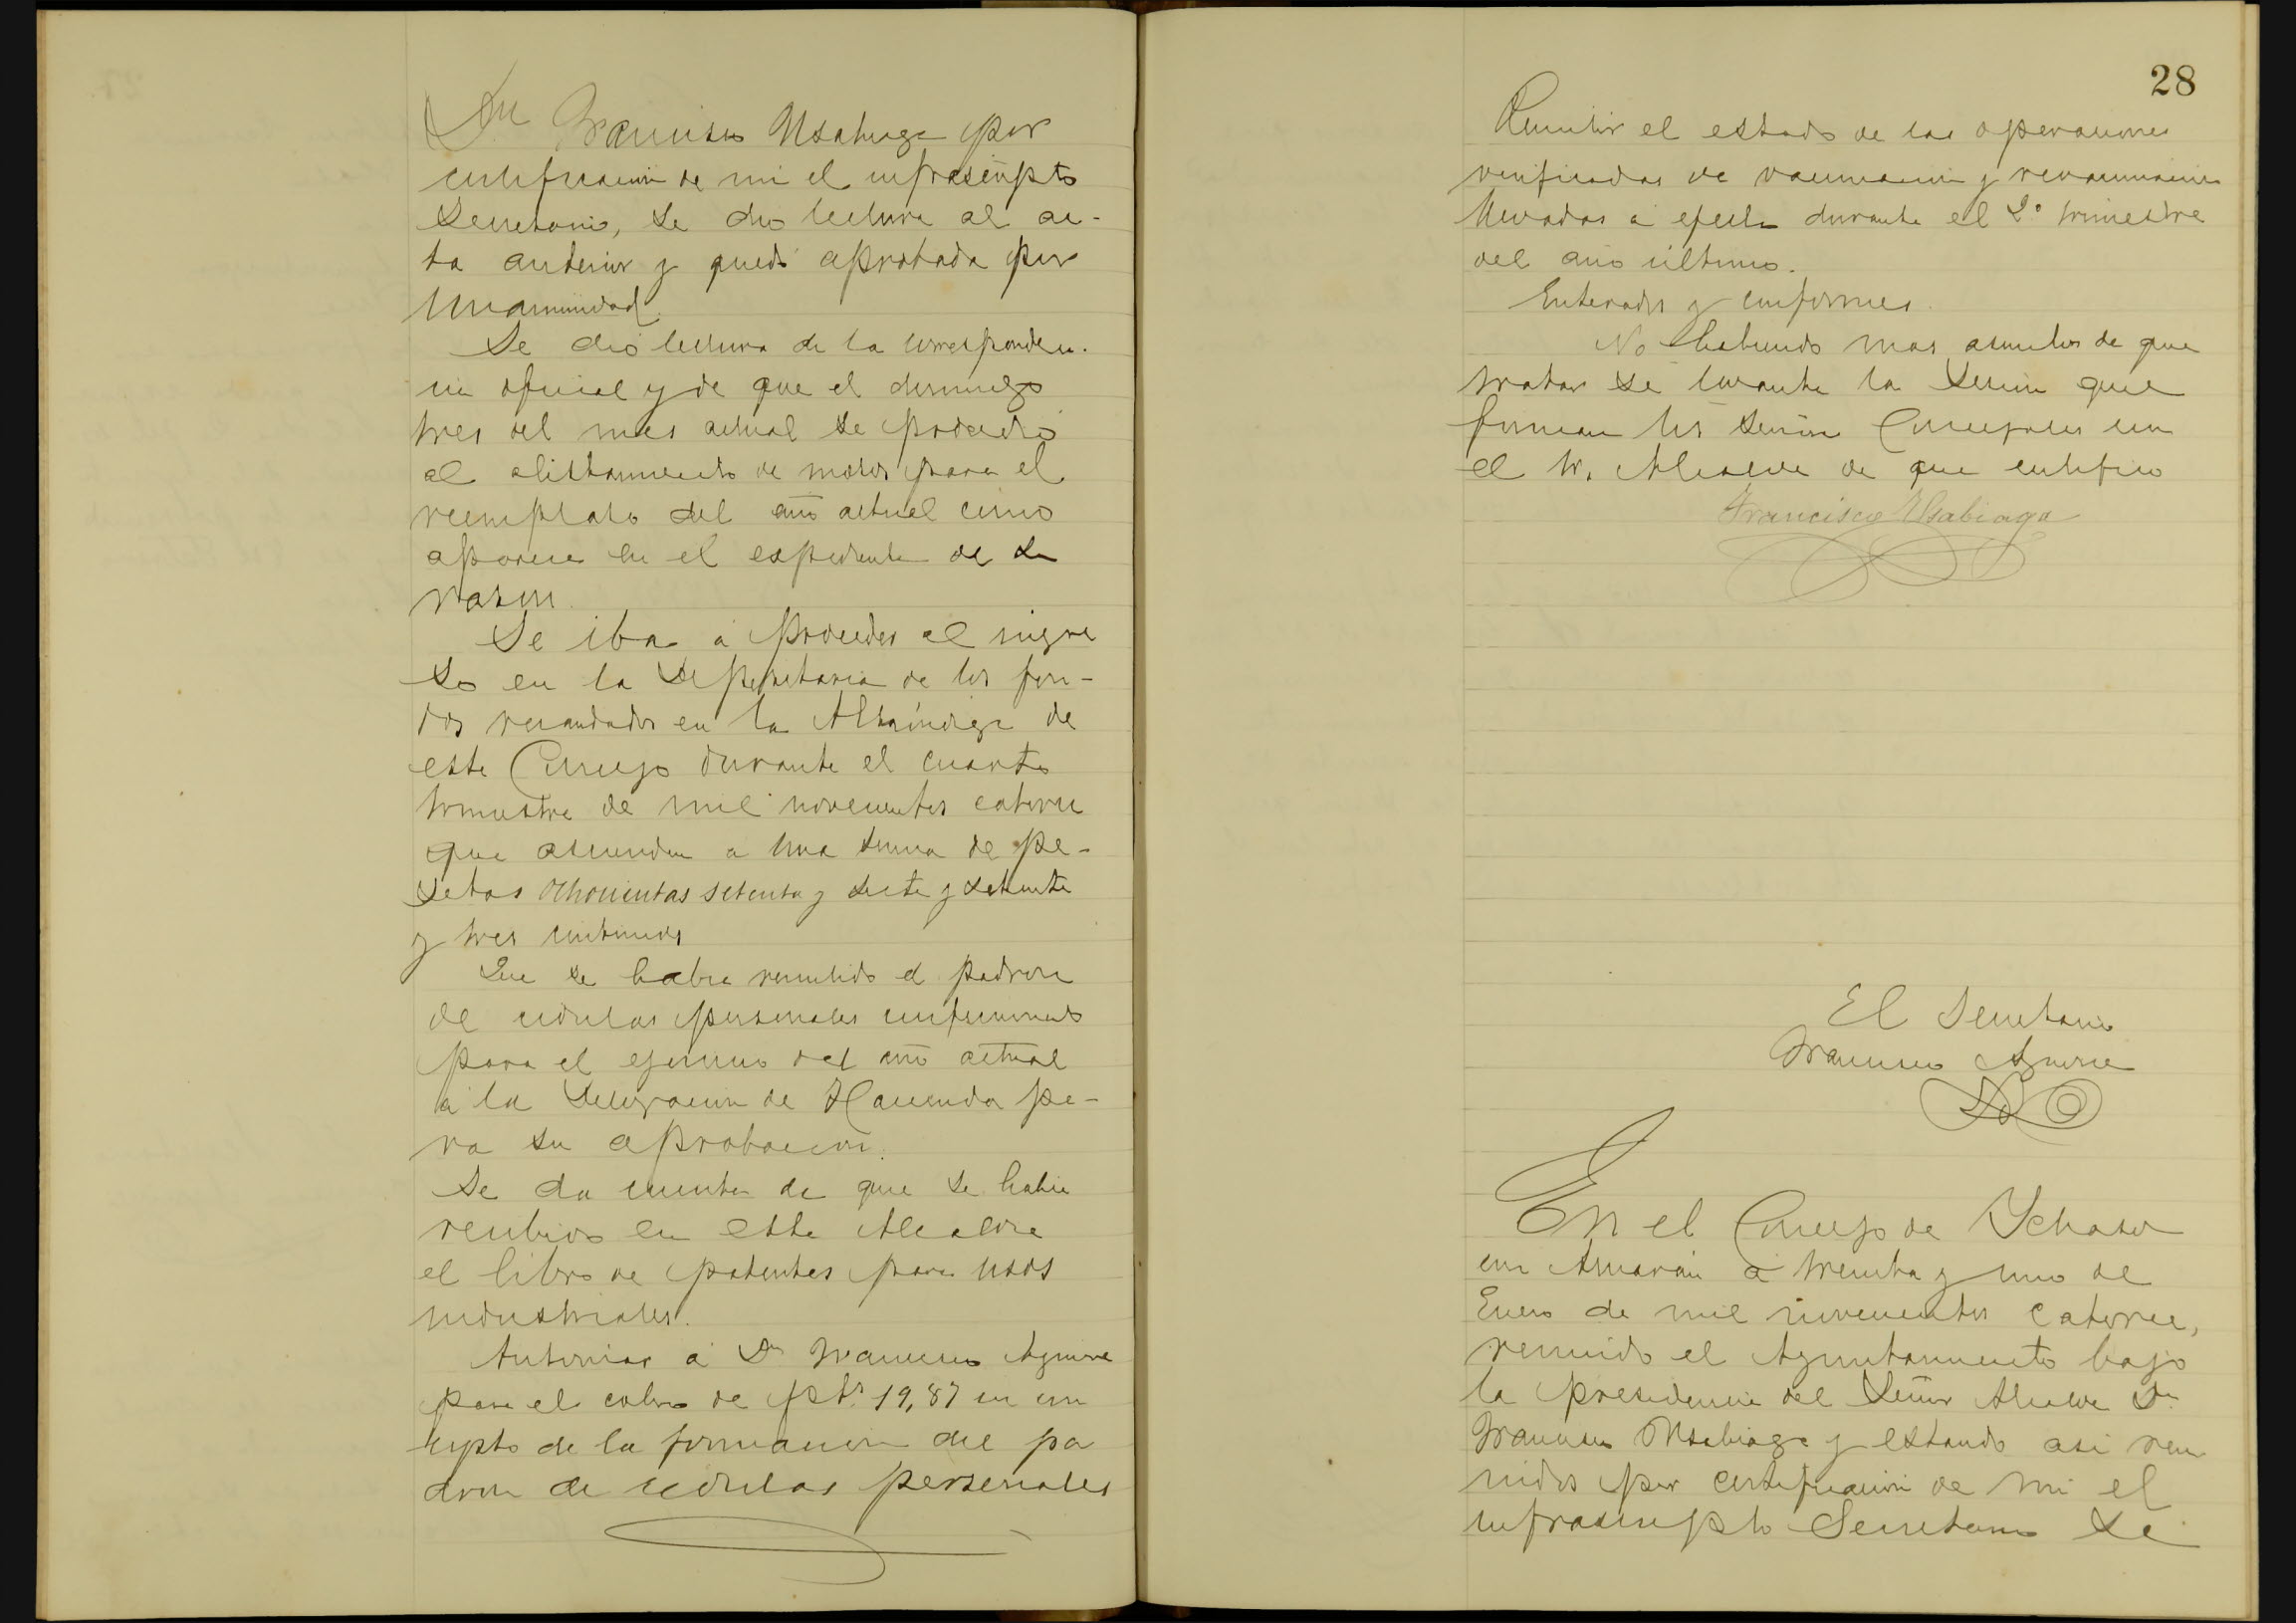 Dn Francisco Usabiaga por
certificacion de mi el infrascripto
Secretario, se dio lectura al ac-
ta anterior y quedó aprobada por
unanimidad.
Se dió lectura de la corresponden-
cia oficial y de que el domingo
tres del mes actual se procedió
al alistamiento de mozos para el
reemplazo del año actual como
aparece en el expediente de su
razon.
Se iba a proceder al ingre
so en la Depositaria de los fon-
dos recaudados en la Alhóndiga de
este Concejo durante el cuarto
trimestre de mil novecientos catorce
que ascienden a una suma de pe-
setas ochocientas setenta y siete y setenta
y tres centimos
Que se habia remitido el padron
de cedulas personales confeccionado
para el ejercicio del año actual
á la Delegacion de Hacienda pa-
ra su aprobacion.
Se da cuenta de que se habia
recibido en esta Alcaldia
el libro de patentes para usos
industriales.
Autorizar á Dn Francisco Aguirre
para el cobro de pts. 19,87 en con
cepto de la formacion del pa
dron de cedulas personales
28
Remitir el estado de las operaciones
verificadas de vacunacion y revacunacion
llevadas á efecto durante el 2º trimestre
del año último.
Enterados y conformes.
No habiendo mas asuntos de que
tratar se levanta la sesion que
firman los señores Concejales con
el Sr. Alcalde de que certifico
Francisco Usabiaga
El Secretario
Francisco Aguirre
En el Concejo de Ychaso
en Arriarán á treinta y uno de
Enero de mil novecientos catorce,
reunido el Ayuntamiento bajo
la presidencia del Señor Alcalde Dn
Francisco Usabiaga y estando asi reu
nidos por certificacion de mi el
infrascripto Secretario se